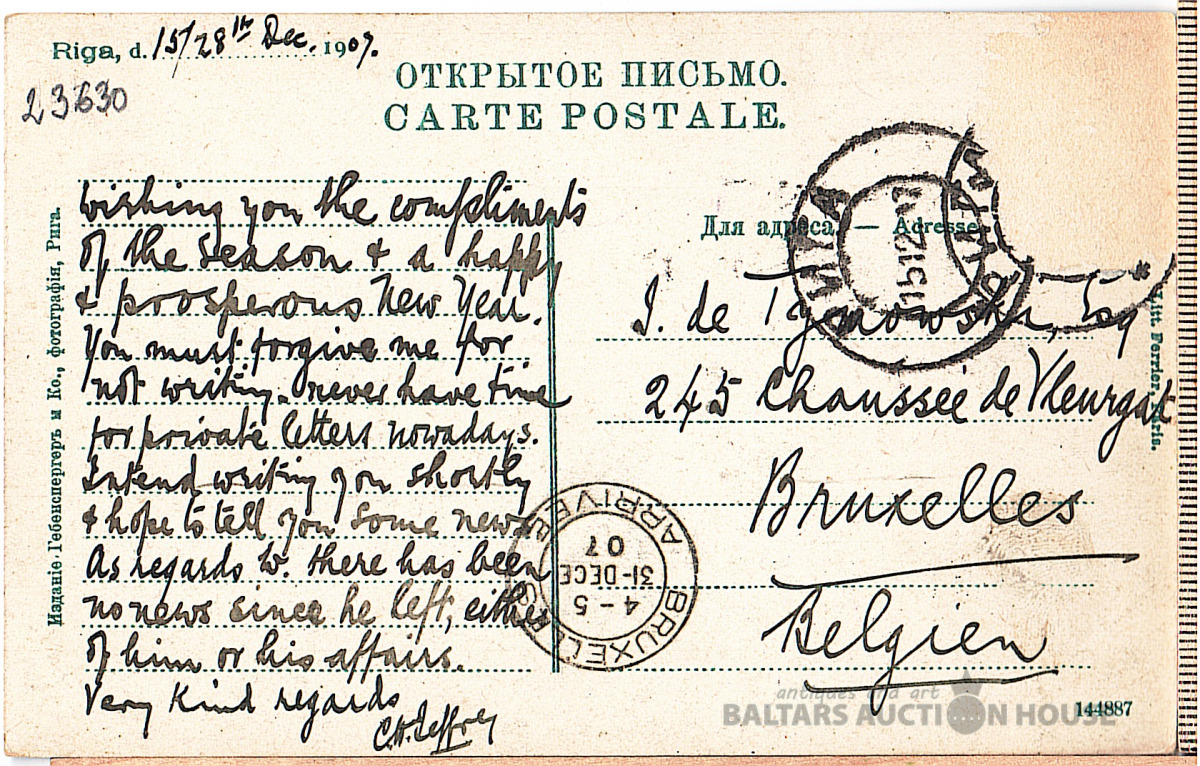 Riga, d. 15/28th Dec. 1907.
23630
ОТКРЫТОЕ ПИСЬМО.
CARTE POSTALE.
wishing you the compliments
of the Season & a happy
& prosperous New Year.
You must forgive me for
not writing. never have time
for private letters nowadays.
Intend writing you shortly
& hope to tell you some news
As regards W. there has been
no news since he left, either
of him or his affairs.
Very Kind regards
C.H. Jeffrey
Для адреса. — Adresse
J. de Tymowski, Esq
245 Chaussée de Vleurgat
Bruxelles
Belgien
РИГА
BRUXELLES
ARRIVEE
4-5
31-DECE
07
Изданіе Гебенспергеръ и Ко., фотографія, Рига.
Ferrier, Paris.
144887
antiques and art
BALTARS AUCTION HOUSE